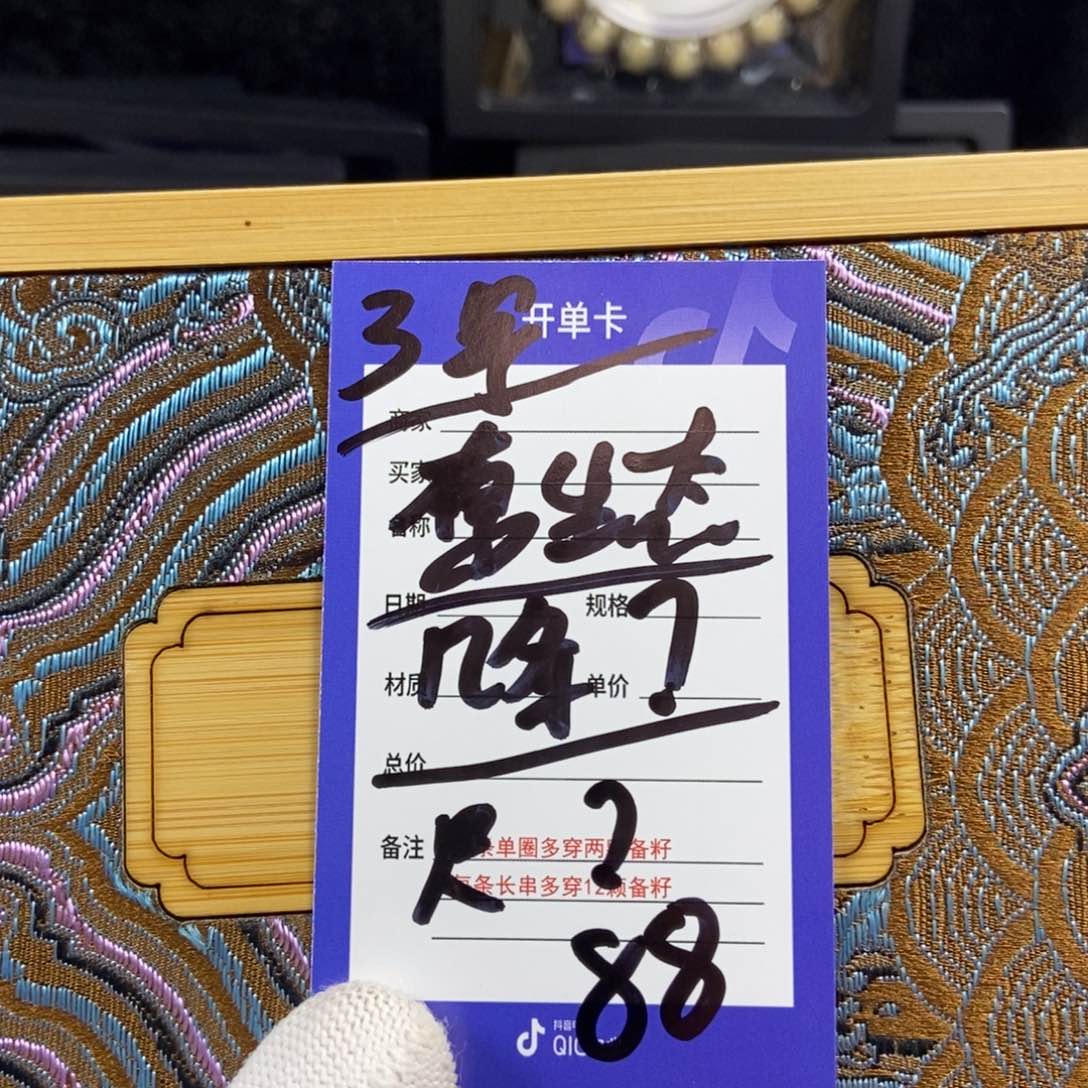 开单卡
3号
商家
买家
备称
日期 规格
几年?
材质 单价
总价
备注
单圈多穿两 备籽
每条长串多穿12颗备籽
尺?
88
抖音
QIC